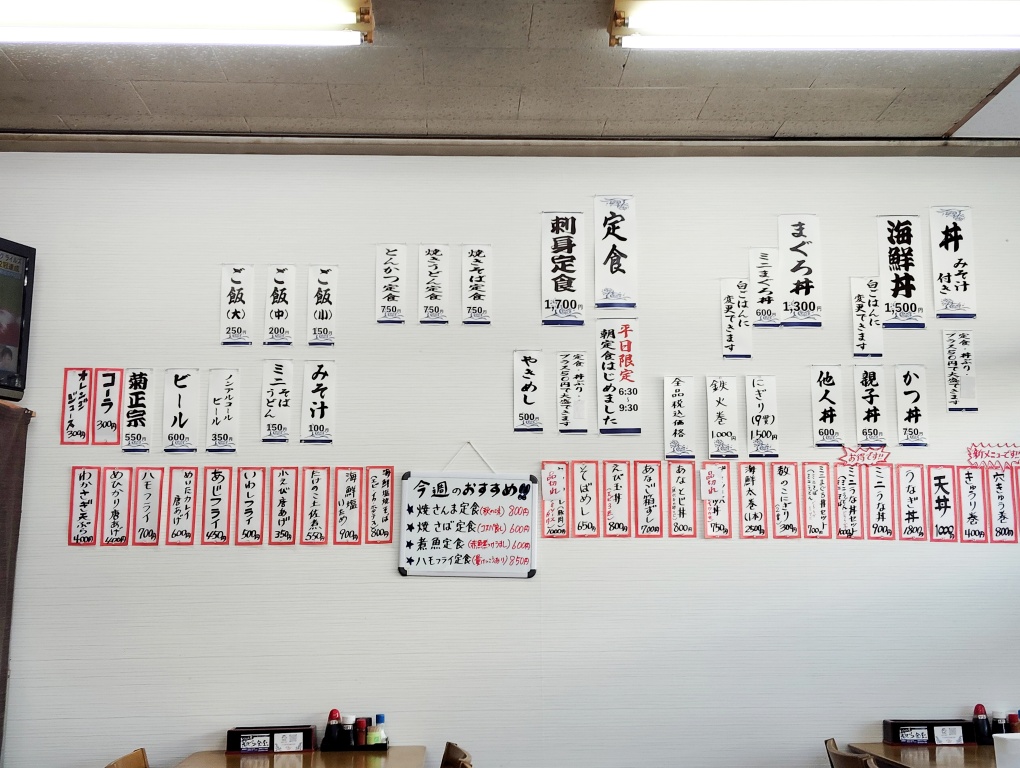 丼 みそ汁付き
海鮮丼 1,500円
白ごはんに変更できます
まぐろ丼 1,300円
ミニまぐろ丼 600円
白ごはんに変更できます
定食
刺身定食 1,700円
焼きそば定食 750円
焼きうどん定食 750円
とんかつ定食 750円
ご飯(小) 150円
ご飯(中) 200円
ご飯(大) 250円
定食・丼ぶり
プラス50円で大盛できます
かつ丼 750円
親子丼 650円
他人丼 600円
にぎり(9貫) 1,500円
鉄火巻 1,000円
全品税込価格
平日限定 6:30~9:30
朝定食はじめました
定食・丼ぶり
プラス50円で大盛できます
やきめし 500円
みそ汁 100円
ミニそばうどん 150円
ノンアルコールビール 350円
ビール 600円
菊正宗 550円
コーラ 300円
オレンジジュース 300円
新メニューです!!
穴きゅう巻 800円
きゅうり巻 400円
天丼 1000円
うなぎ丼 1800円
お得です!!
ミニうな丼 900円
ミニうな丼セット
ミニまぐろ丼セット 700円
数のこにぎり 300円
海鮮太巻(1本) 2500円
品切れ 750円
あなとじ丼 800円
あなご箱ずし 1700円
えび玉丼 800円
そばめし 650円
品切れ
今週のおすすめ!!
★焼さんま定食(秋の味)800円
★焼さば定食 600円
★煮魚定食 600円
★ハモフライ定食 850円
海鮮塩焼そば 800円
海鮮塩いため 900円
たけのこ土佐煮 550円
小えび唐あげ 350円
いわしフライ 500円
あじフライ 450円
めいたカレイ唐あげ 600円
ハモフライ 700円
めひかり唐あげ 400円
わかさぎ天ぷら 400円